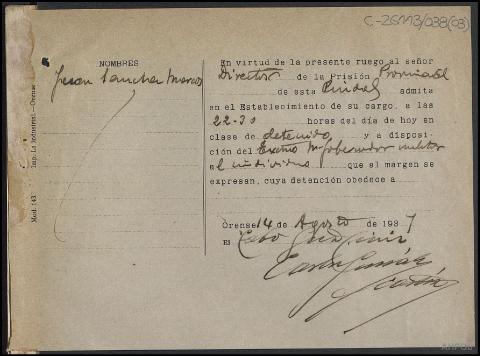 C-26113/038(03)
NOMBRES
Juan Sanchez Marcos
Mod. 143 Imp. La Industrial.—Orense
En virtud de la presente ruego al señor
Director de la Prisión Provincial
de esta Ciudad admita
en el Establecimiento de su cargo, a las
22-30 horas del día de hoy en
clase de detenido y a disposi-
ción del Excmo Sr gobernador militar
al individuo que al margen se
expresan, cuya detención obedece a
Orense 14 de Agosto de 1937
El Cabo
AHPOU